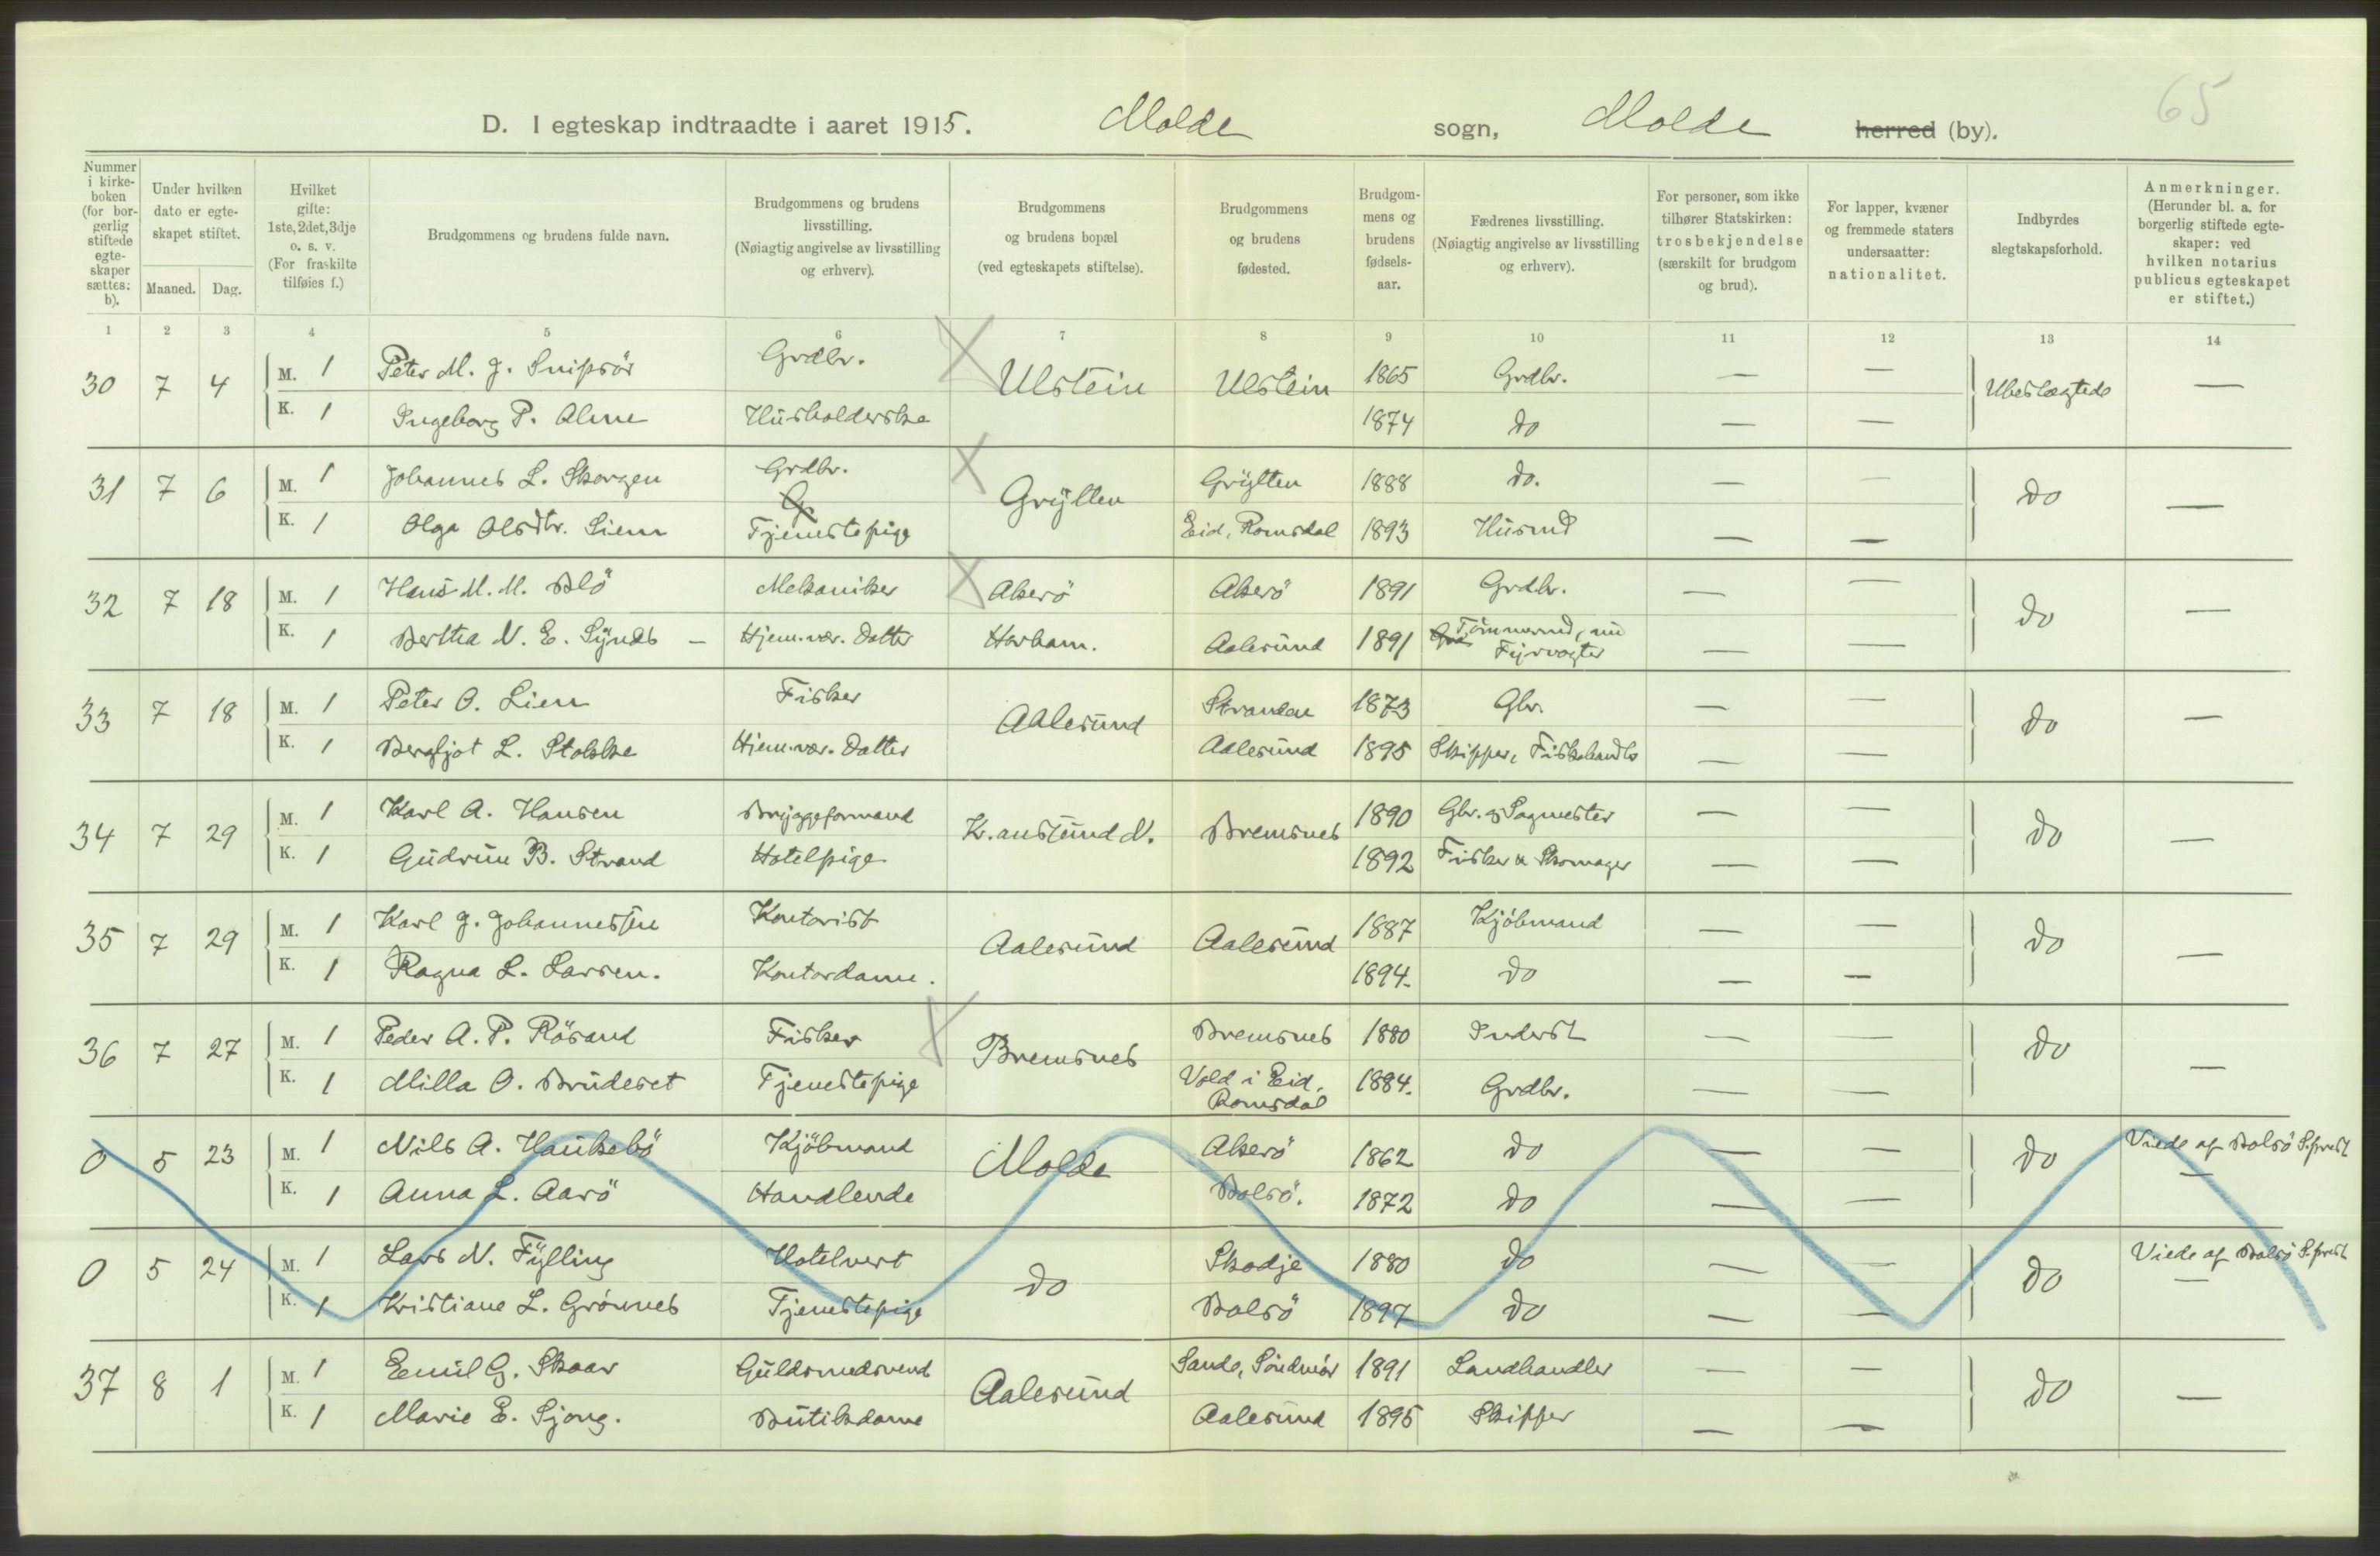 65
D. I egteskap indtraadte i aaret 1915. Molde sogn, Molde herred (by).
Nummer i kirke- boken (for bor- gerlig stiftede egte- skaper sættes: b).
Under hvilken dato er egte- skapet stiftet.
Maaned. Dag.
Hvilket gifte: 1ste, 2det, 3dje o. s. v. (For fraskilte tilføies f.)
Brudgommens og brudens fulde navn.
Brudgommens og brudens livsstilling. (Nøiagtig angivelse av livsstilling og erhverv).
Brudgommens og brudens bopæl (ved egteskapets stiftelse).
Brudgommens og brudens fødested.
Brudgom- mens og brudens fødsels- aar.
Fædrenes livsstilling. (Nøiagtig angivelse av livsstilling og erhverv).
For personer, som ikke tilhører Statskirken: trosbekjendelse (særskilt for brudgom og brud).
For lapper, kvæner og fremmede staters undersaatter: nationalitet.
Indbyrdes slegtskapsforhold.
Anmerkninger. (Herunder bl. a. for borgerlig stiftede egte- skaper: ved hvilken notarius publicus egteskapet er stiftet.)
1 2 3 4 5 6 7 8 9 10 11 12 13 14
30 7 4 M. 1 Peter M. J. Snipsör Grdbr. Ulstein Ulstein 1865 Grdbr. — — Ubeslægtede —
K. 1 Ingeborg P. Alme Husholderske 1874 do — —
31 7 6 M. 1 Johannes L. Skorgen Grdbr. Grytten Grytten 1888 do. — — do —
K. 1 Olga Olsdtr. Liem Tjenestepige Eid, Romsdal 1893 Husmd — —
32 7 18 M. 1 Hans M. M. Blö Mekaniker Akerö Akerö 1891 Grdbr. — — do —
K. 1 Bertha N. E. Synds — Hjem.vær. Datter Harham. Aalesund 1891 Tömmermd, nu Fyrvogter — —
33 7 18 M. 1 Peter O. Lien Fisker Aalesund Stranden 1873 Gbr. — — do —
K. 1 Bergljot L. Stokke Hjem.vær. Datter Aalesund 1895 Skipper, Fiskehandler — —
34 7 29 M. 1 Karl A. Hansen Bryggeformand Kr.ansund N. Bremsnes 1890 Gbr. og Sagmester — — do —
K. 1 Gudrun B. Strand Hotelpige 1892 Fisker & Skomager — —
35 7 29 M. 1 Karl J. Johannessen Kontorist Aalesund Aalesund 1887 Kjöbmand — — do —
K. 1 Ragna L. Larsen. Kontordame. 1894. do — —
36 7 27 M. 1 Peder A. P. Rösand Fisker Bremsnes Bremsnes 1880 Inderst — — do —
K. 1 Milla O. Bruderet Tjenestepige Vold i Eid, Romsdal 1884. Grdbr. — —
0 5 23 M. 1 Nils A. Haukebö Kjöbmand Molde Akerö 1862 do — — do Viede af Bolsö S.prest —
K. 1 Anna L. Aarö Handlende Bolsö. 1872 do — —
0 5 24 M. 1 Lars N. Fylling Hotelvert do Skodje 1880 do — — do Viede af Bolsö S.prest —
K. 1 Kristiane L. Grönnes Tjenestepige Bolsö 1897 do — —
37 8 1 M. 1 Emil G. Skaar Guldsmedsvend Aalesund Sande, Söndmör 1891 Landhandler — — do —
K. 1 Marie E. Sjong. Butikdame Aalesund 1895 Skipper — —